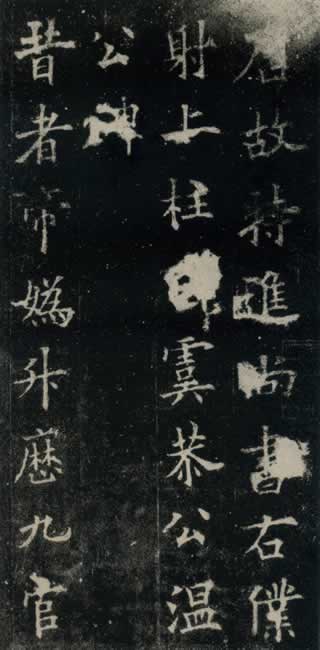 唐故特進尚書右僕
射上柱虞恭公温
公碑
昔者帝媯升歷九官